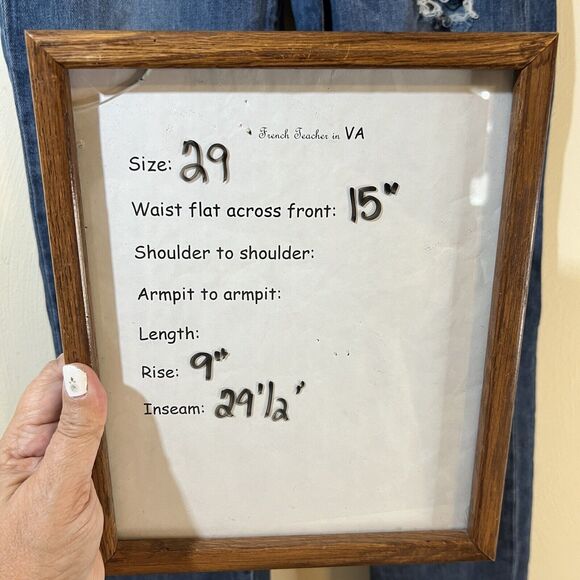 French Teacher in VA
Size: 29
Waist flat across front: 15"
Shoulder to shoulder:
Armpit to armpit:
Length:
Rise: 9"
Inseam: 29 1/2"